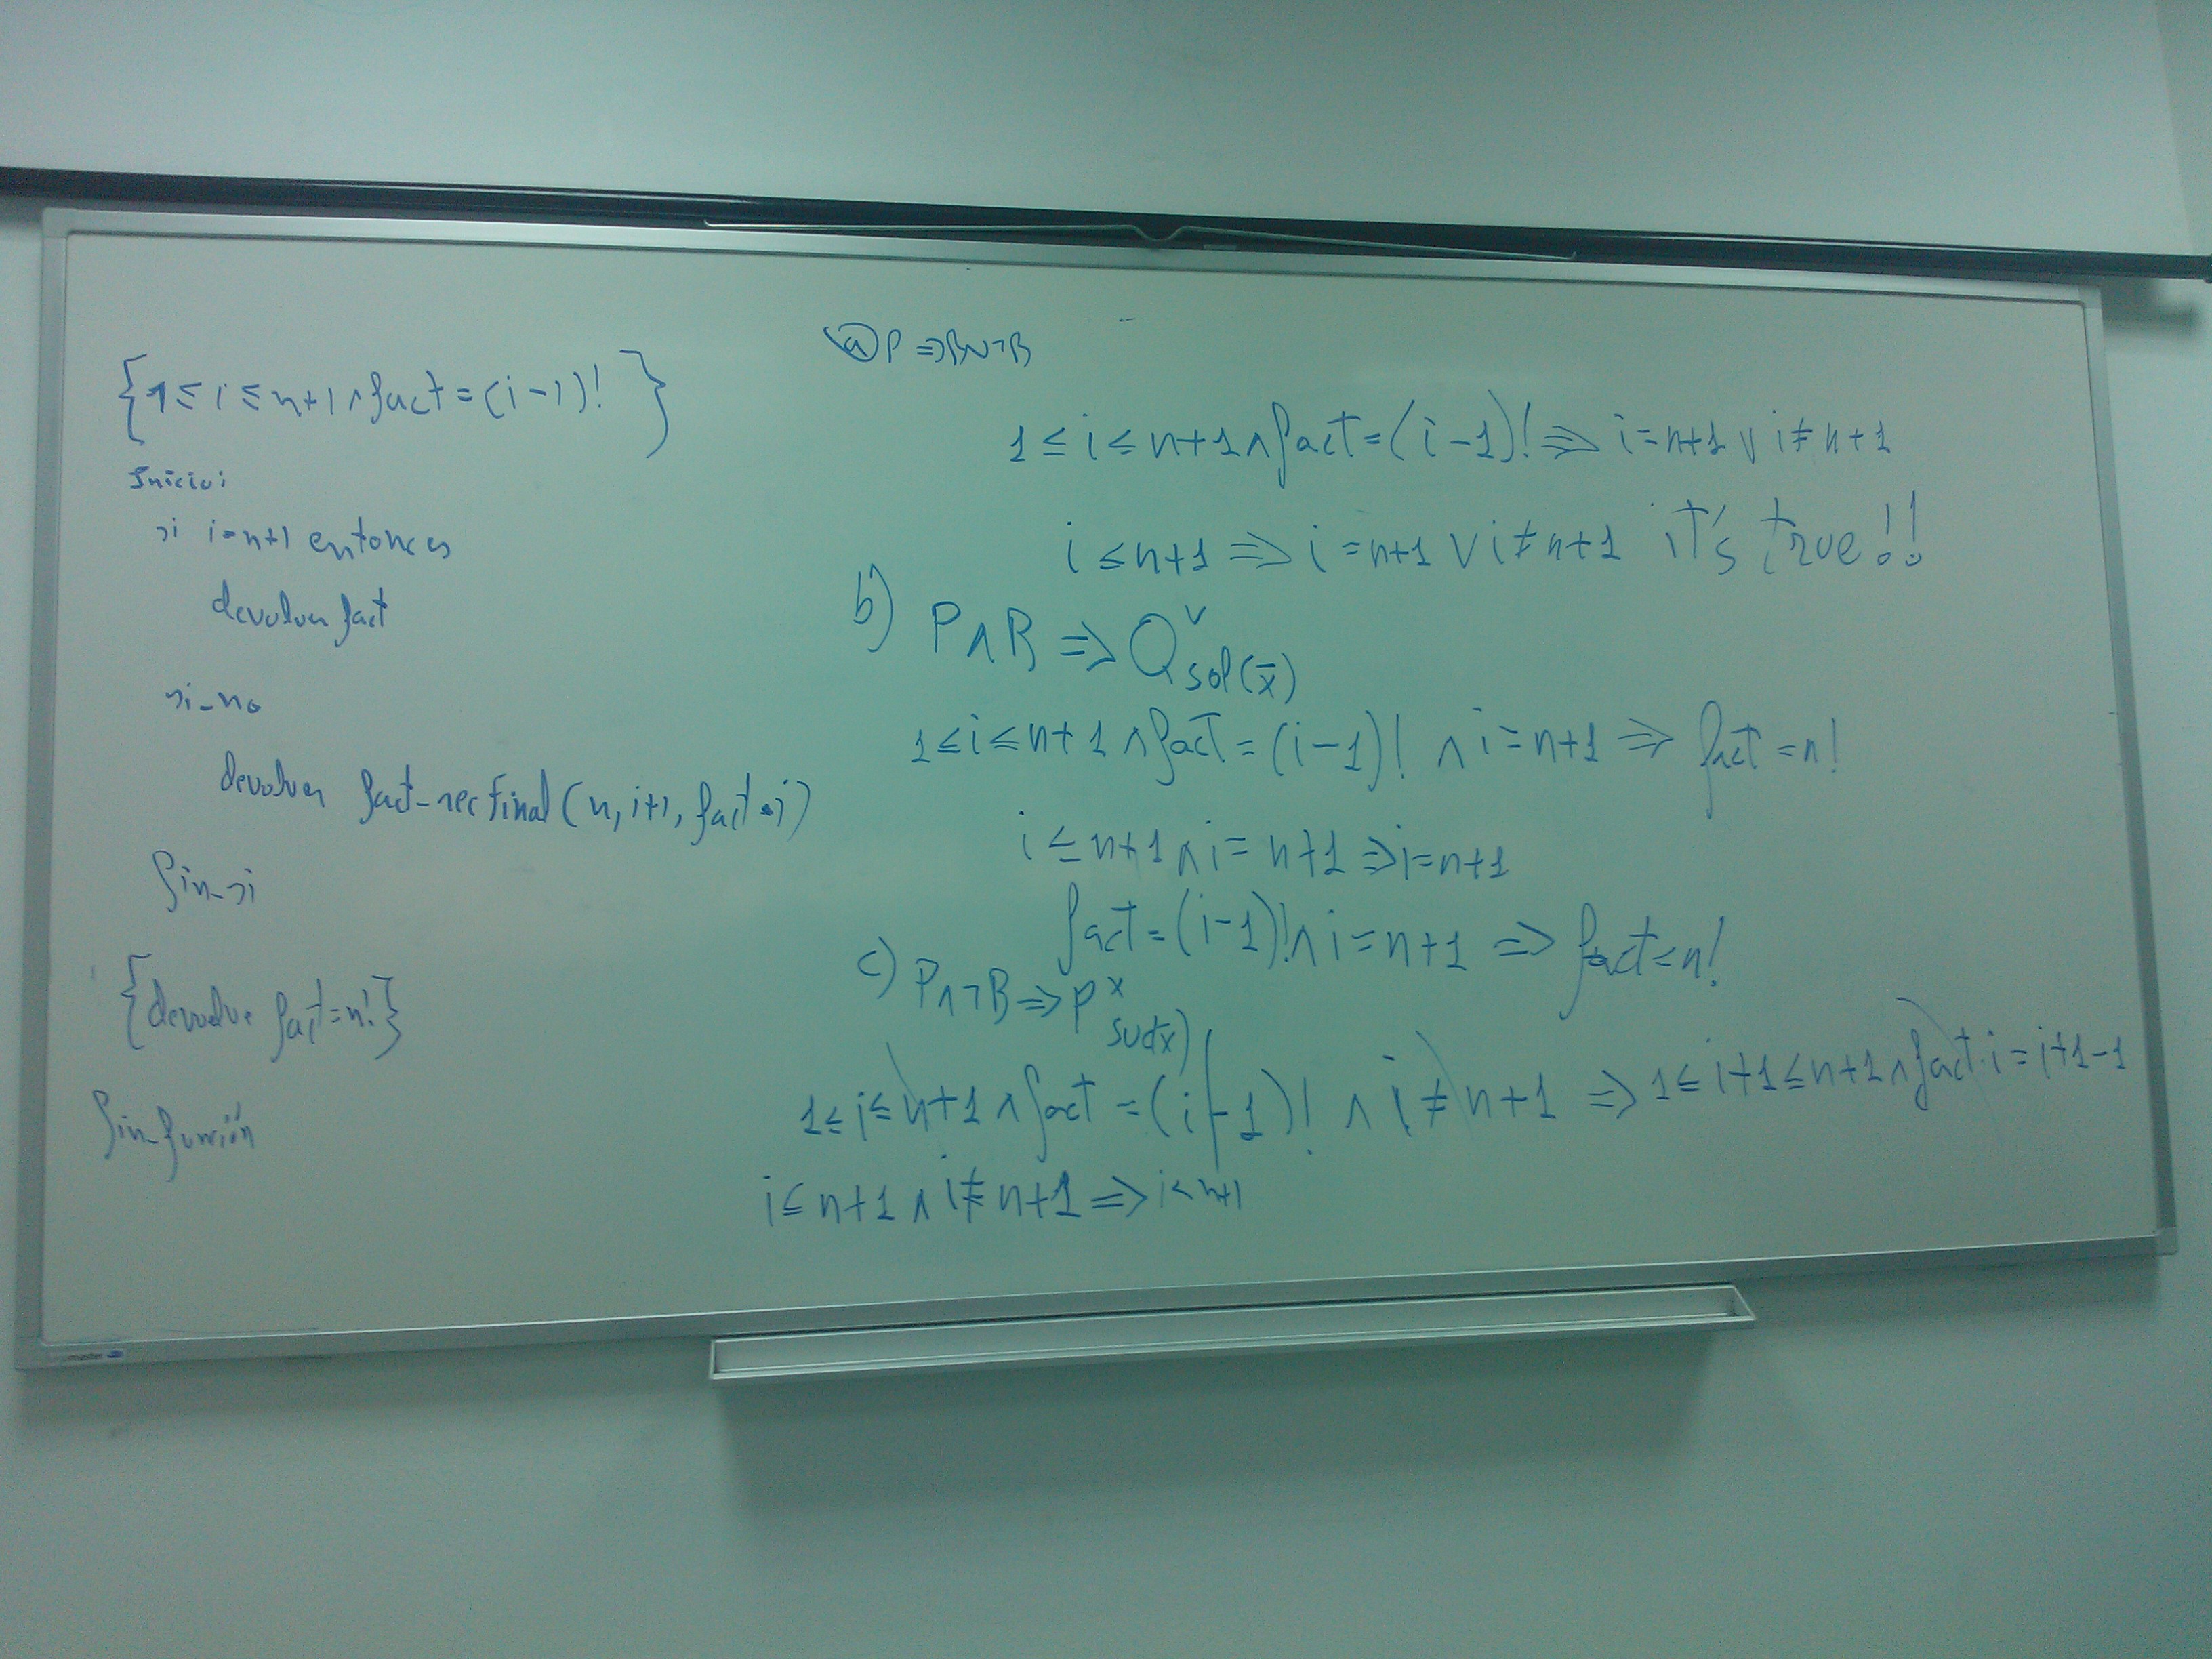 {1 ≤ i ≤ n+1 ∧ fact = (i-1)! }
Inicio:
si i=n+1 entonces
devolver fact
si_no
devolver fact_rec final (n, i+1, fact * i)
fin_si
{devuelve fact=n!}
fin_función
a) P ⇒ B∨¬B
1 ≤ i ≤ n+1 ∧ fact = (i-1)! ⇒ i=n+1 ∨ i≠n+1
i ≤ n+1 ⇒ i = n+1 ∨ i ≠ n+1 it's true!!
b) P∧B ⇒ Q^v_sol(x̄)
1 ≤ i ≤ n+1 ∧ fact = (i-1)! ∧ i = n+1 ⇒ fact = n!
i ≤ n+1 ∧ i = n+1 ⇒ i=n+1
fact = (i-1)! ∧ i = n+1 ⇒ fact = n!
c) P∧¬B ⇒ P^x_suc(x̄)
1 ≤ i ≤ n+1 ∧ fact = (i-1)! ∧ i ≠ n+1 ⇒ 1 ≤ i+1 ≤ n+1 ∧ fact·i = i+1-1
i ≤ n+1 ∧ i ≠ n+1 ⇒ i < n+1